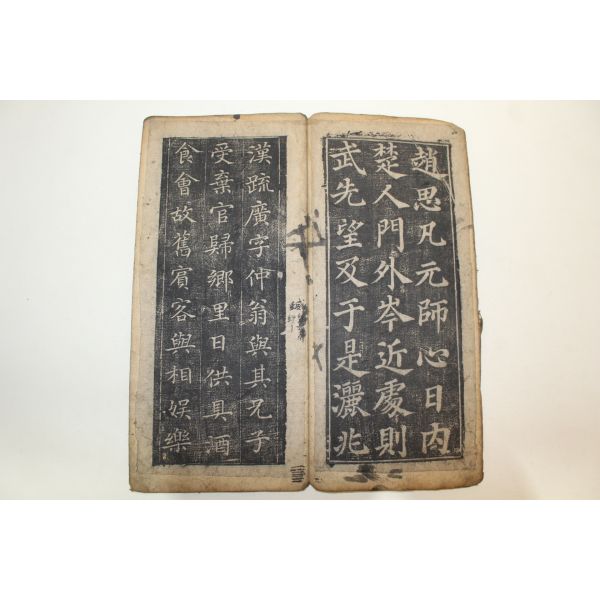 趙思凡元師心日內
楚人門外岑近處則
武先望及于是灑兆
漢疏廣字仲翁與其兄子
受棄官歸鄉里日供具酒
食會故舊賓客與相娛樂